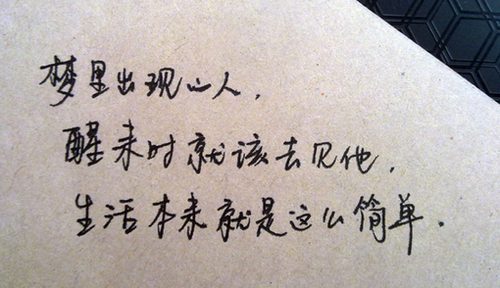 梦里出现的人，
醒来时就该去见他，
生活本来就是这么简单．